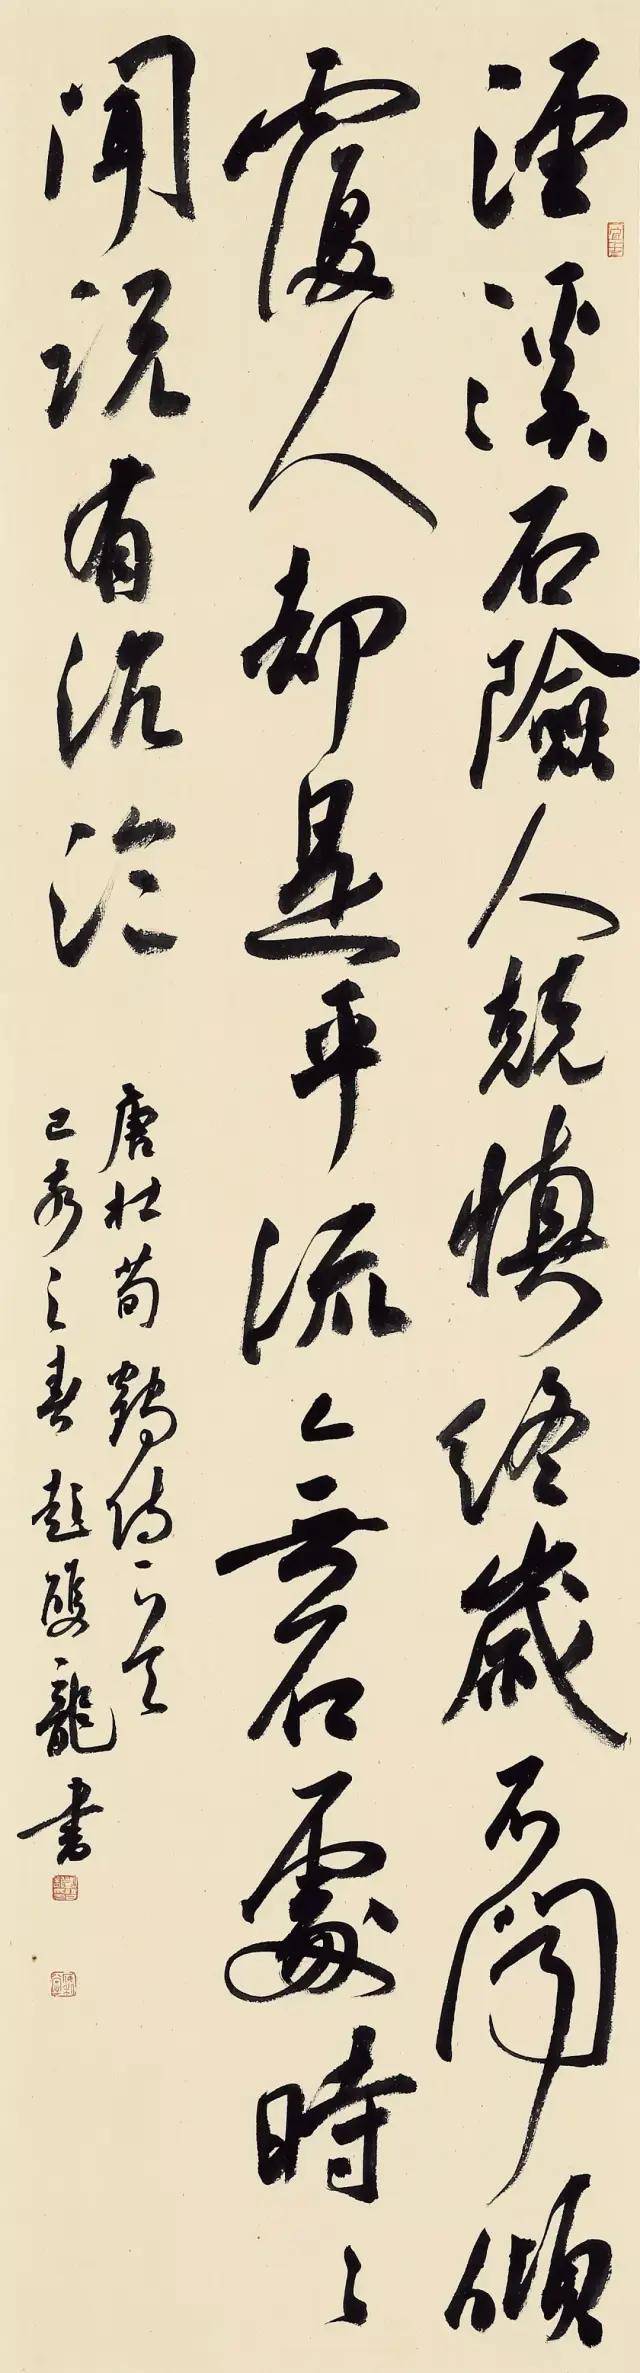 涇溪石險人兢慎終歲不聞傾
覆人却是平流無石處時〻
聞説有沉淪
唐杜荀鶴詩一首
己亥之春彭雙龍書